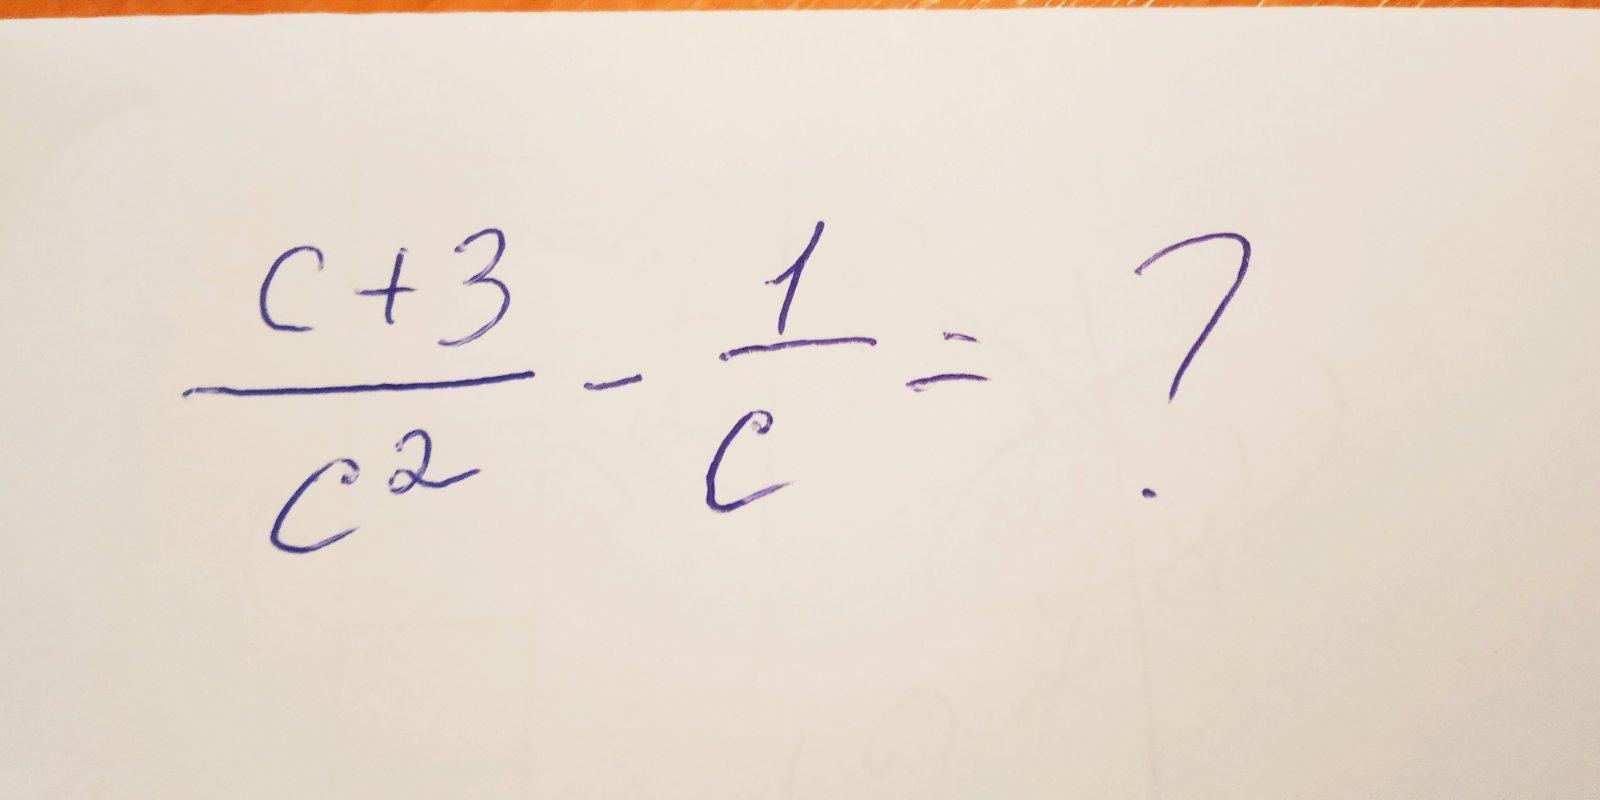 (c+3)/c² - 1/c = ?